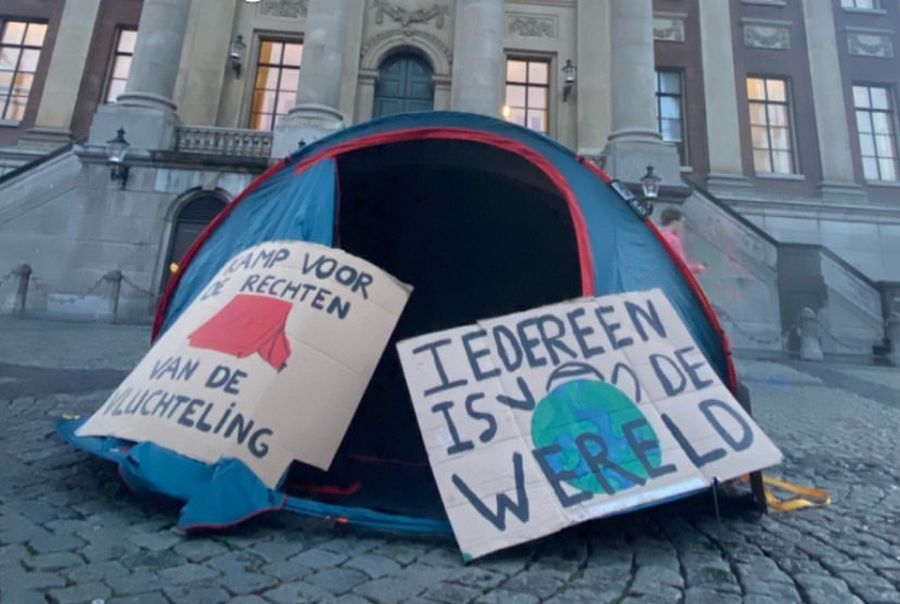 KAMP VOOR
DE RECHTEN
VAN DE
VLUCHTELING
IEDEREEN
IS V DE
WERELD